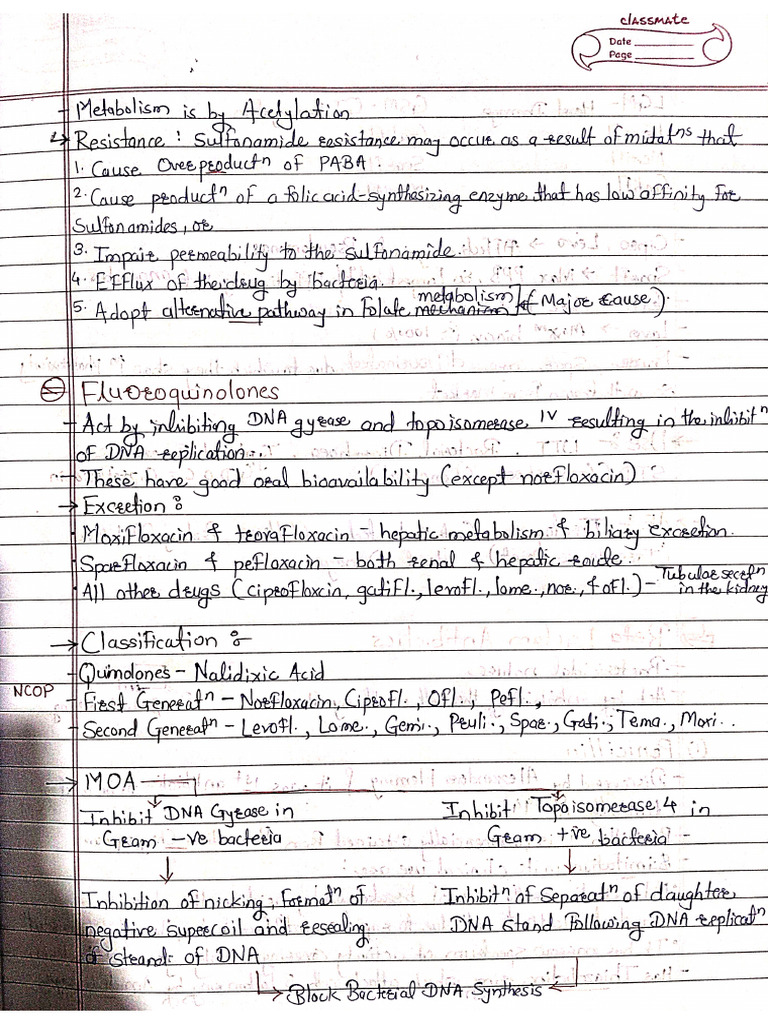 classmate
Date
Page
- Metabolism is by Acetylation
↳ Resistance : Sulfonamide resistance may occur as a result of mutatⁿs that
1. Cause Overproductⁿ of PABA.
2. Cause productⁿ of a folic acid-synthesizing enzyme that has low affinity for
Sulfonamides, or
3. Impair permeability to the sulfonamide.
4. Efflux of the drug by bacteria.
5. Adopt alternative pathway in Folate metabolism mechanism (Major cause).
Fluoroquinolones
- Act by inhibiting DNA gyrase and topoisomerase IV resulting in the inhibitⁿ
of DNA replication.
- These have good oral bioavailability (except norfloxacin)
→ Excretion :
- Moxifloxacin & trovafloxacin - hepatic metabolism & biliary excretion.
- Sparfloxacin & pefloxacin - both renal & hepatic route.
- All other drugs (ciprofloxcin, gatifl., levofl., lome., nor., & ofl.) - Tubular secretⁿ in the kidney
→ Classification :-
- Quinolones - Nalidixic Acid
NCOP - First Generatⁿ - Norfloxacin, Ciprofl., Ofl., Pefl.,
- Second Generatⁿ - Levofl., Lome., Gemi., Pruli., Spar., Gati., Tema., Moxi..
→ MOA
Inhibit DNA Gyrase in Inhibit Topoisomerase 4 in
Gram -ve bacteria Gram +ve bacteria -
Inhibition of nicking, formatⁿ of Inhibitⁿ of Separatⁿ of daughter
negative supercoil and resealing DNA stand following DNA replicatⁿ
of strand of DNA
→ Block Bacterial DNA Synthesis ←